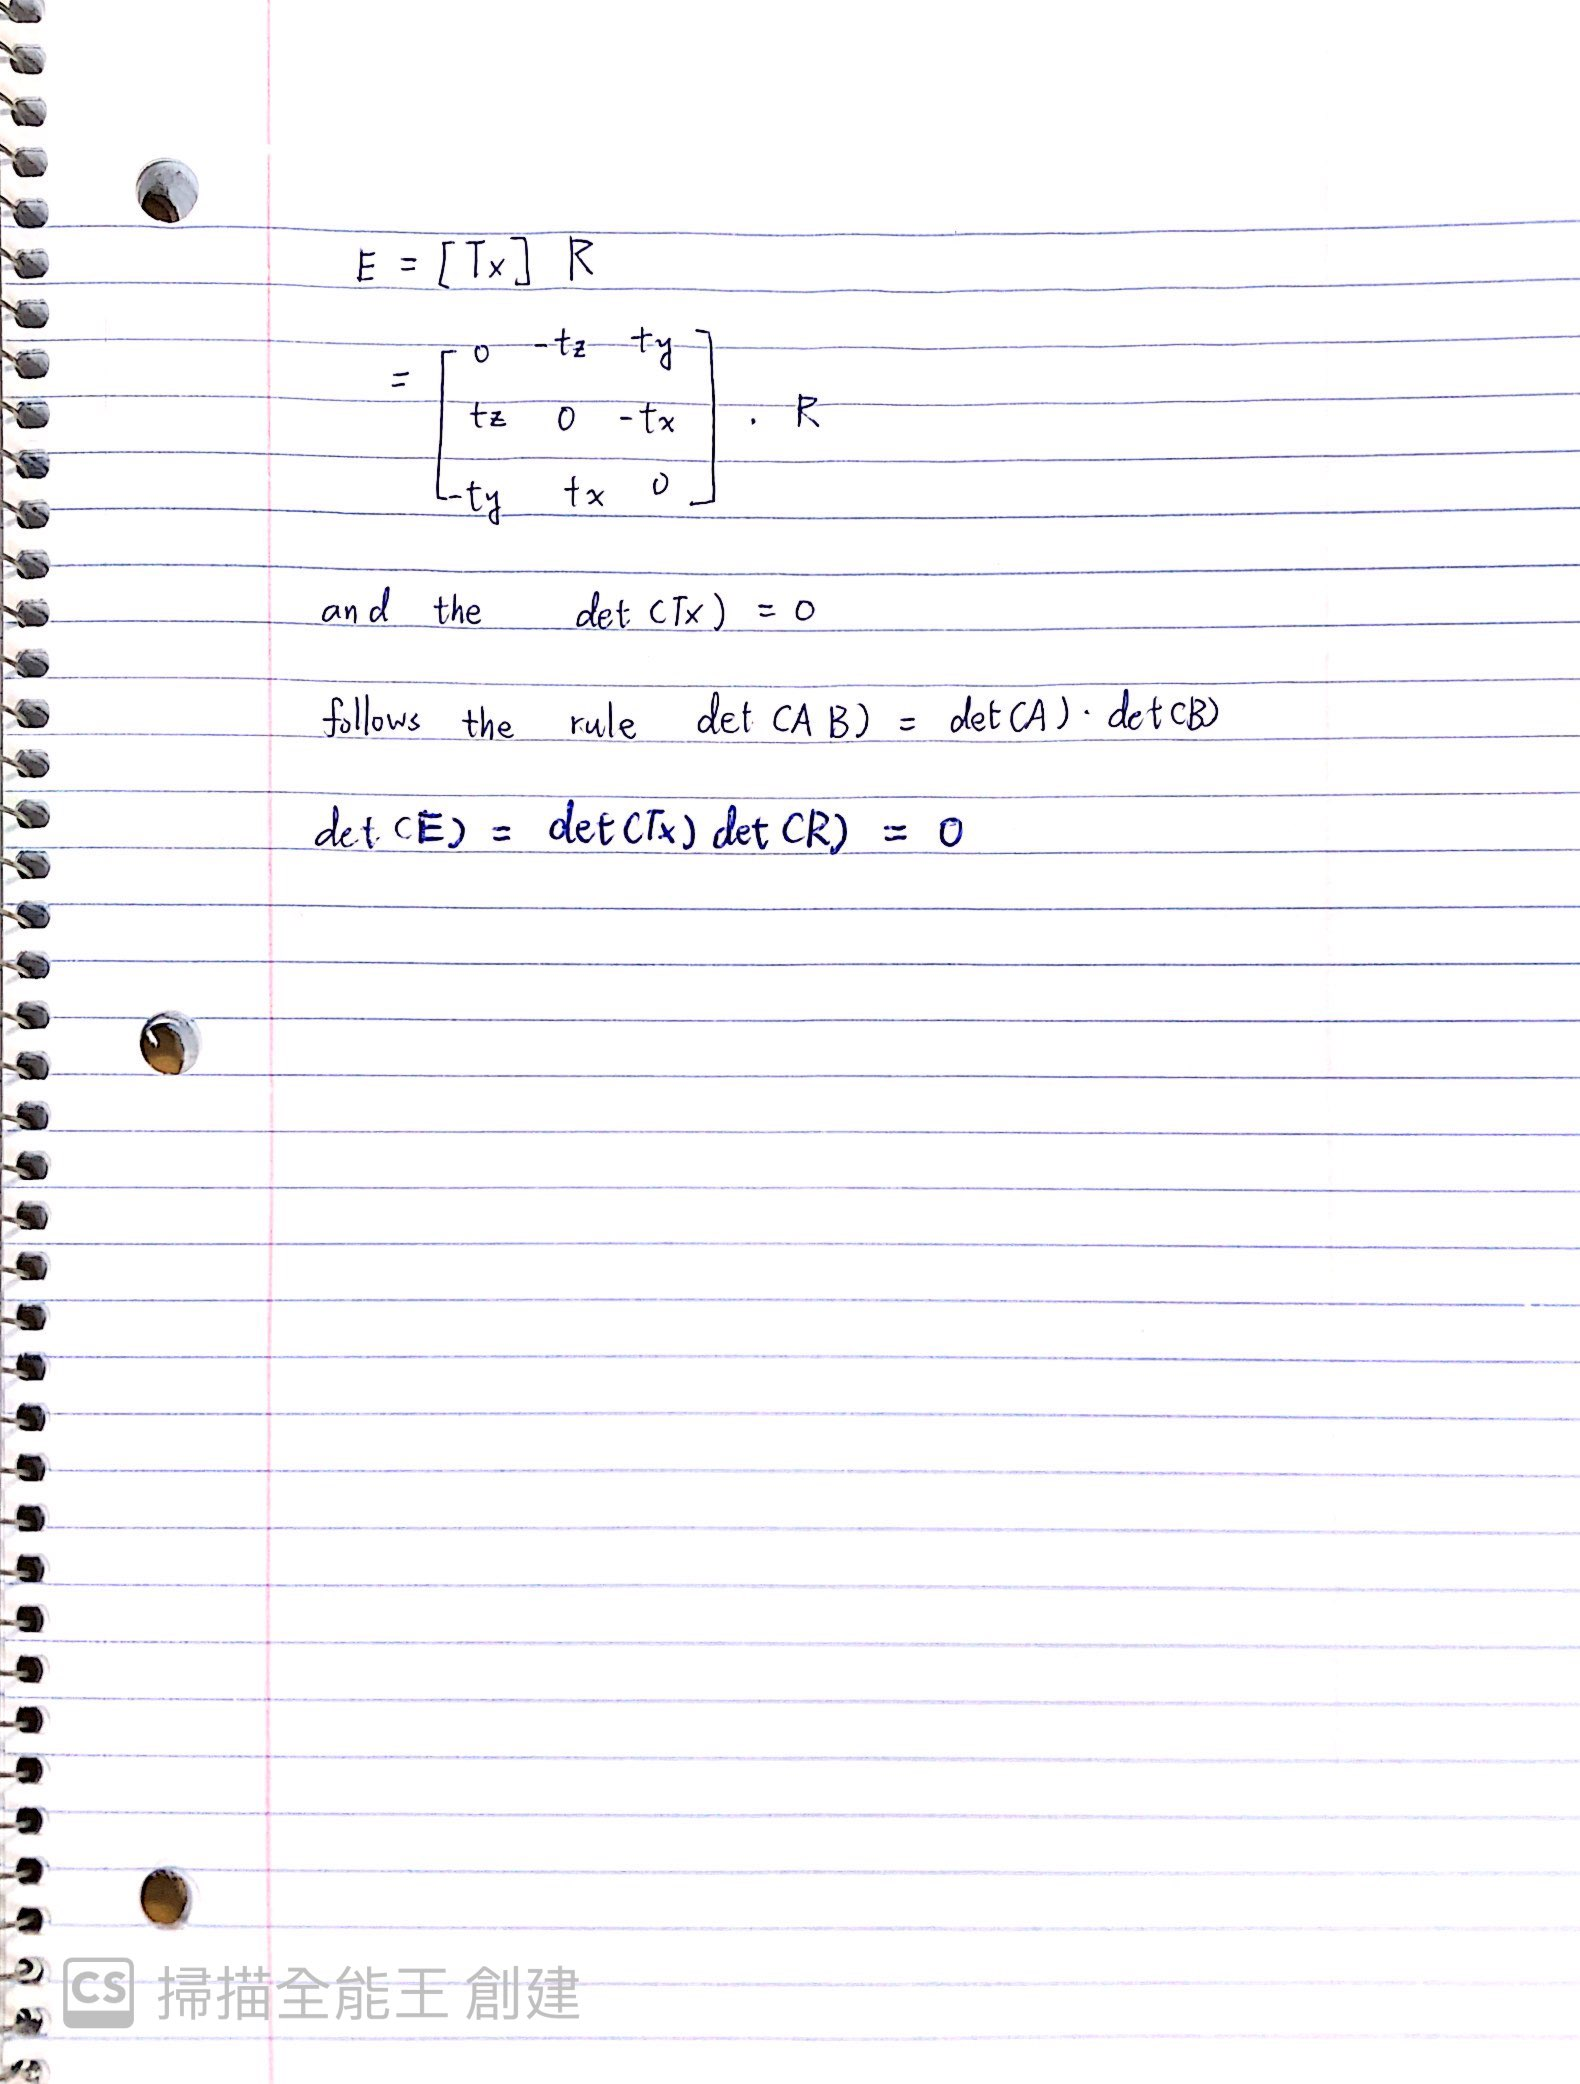 E = [Tx] R
= [ 0 -tz ty
tz 0 -tx . R
-ty tx 0 ]
and the det (Tx) = 0
follows the rule det (A B) = det (A) · det (B)
det (E) = det (Tx) det (R) = 0
CS 掃描全能王 創建